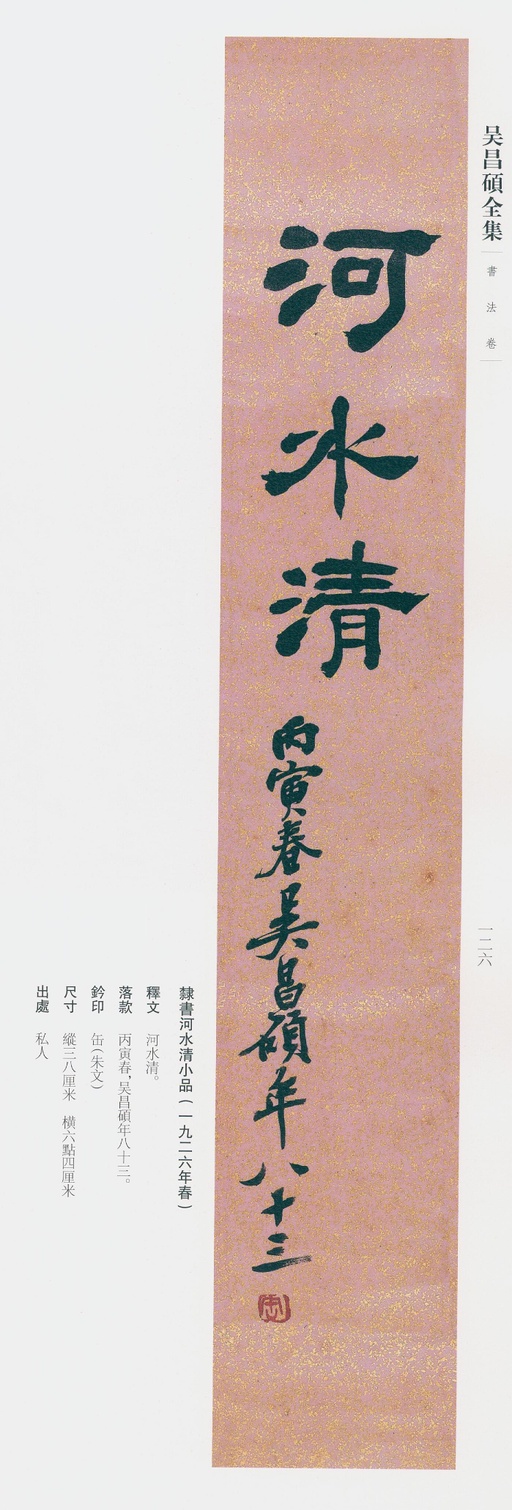 吴昌碩全集
書法卷
一二六
河水清
丙寅春吴昌碩年八十三
缶
隸書河水清小品（一九二六年春）
釋文　河水清。
落款　丙寅春，吴昌碩年八十三。
鈐印　缶（朱文）
尺寸　縱三八厘米　横六點四厘米
出處　私人